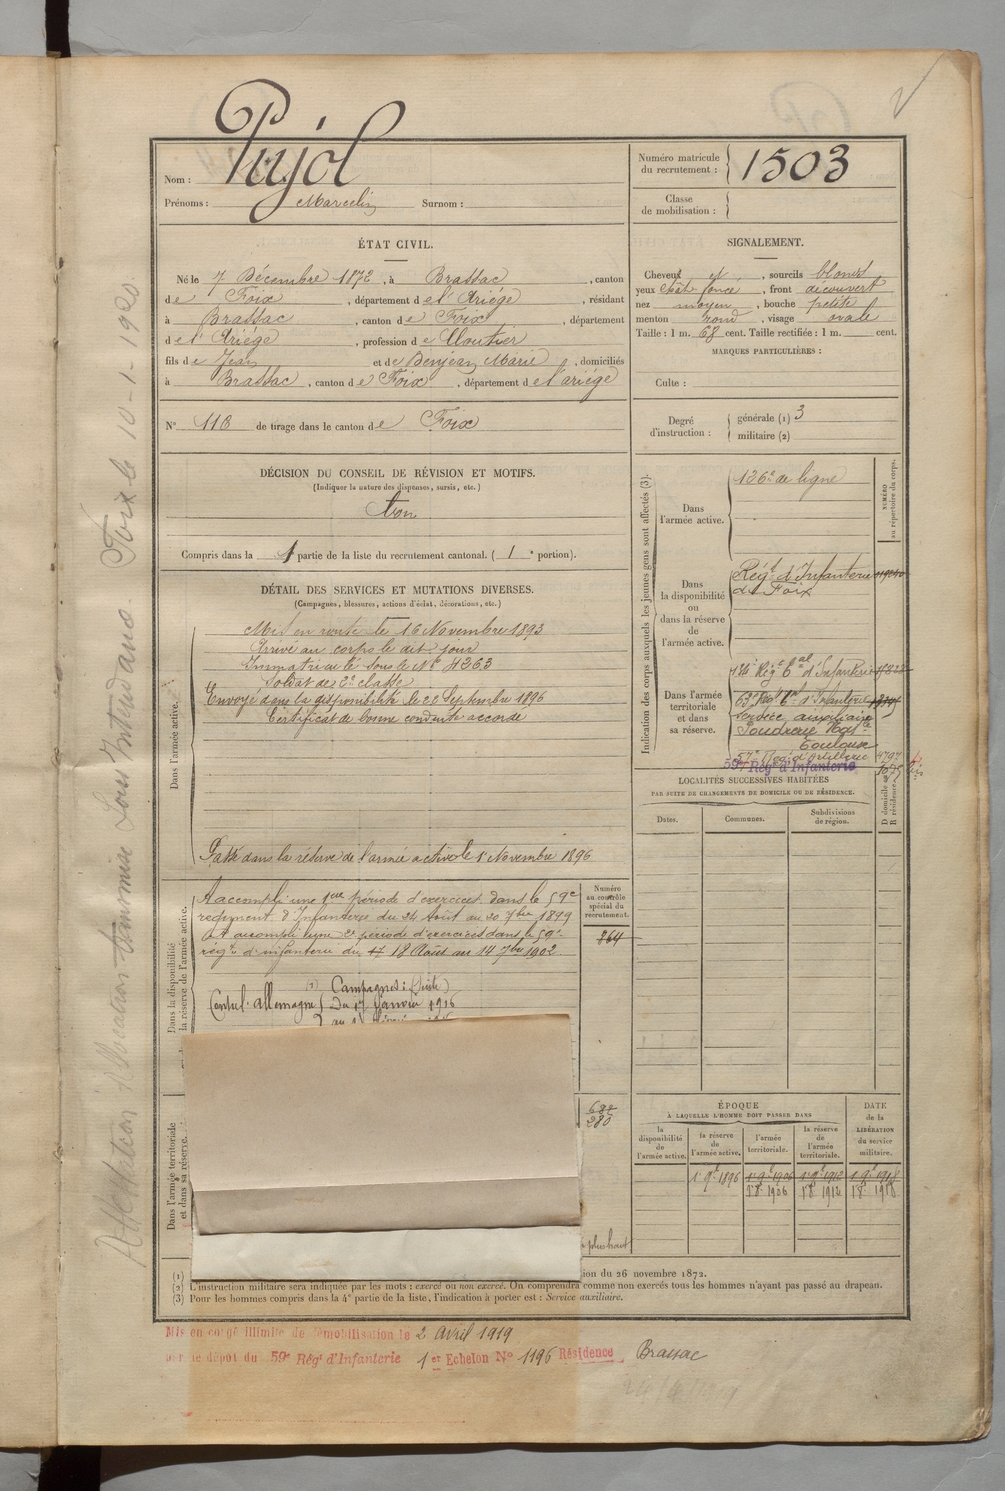 Nom : Pujol
Prénoms : Marcelin Surnom :
Numéro matricule du recrutement : 1503
Classe de mobilisation :
ÉTAT CIVIL.
Né le 7 Décembre 1872, à Brassac, canton
de Foix, département de l'Ariége, résidant
à Brassac, canton de Foix, département
de l'Ariége, profession de Cloutier
fils de Jean et de Benjean Marie, domiciliés
à Brassac, canton de Foix, département de l'ariége
N° 118 de tirage dans le canton de Foix
SIGNALEMENT.
Cheveux et, sourcils blonds
yeux Chât foncé, front découvert
nez moyen, bouche petite
menton rond, visage ovale
Taille : 1 m. 68 cent. Taille rectifiée : 1 m. cent.
MARQUES PARTICULIÈRES :
Culte :
Degré d'instruction : générale (1) 3
militaire (2)
DÉCISION DU CONSEIL DE RÉVISION ET MOTIFS.
(Indiquer la nature des dispenses, sursis, etc.)
Bon
Compris dans la 1 partie de la liste du recrutement cantonal. ( 1 e portion).
DÉTAIL DES SERVICES ET MUTATIONS DIVERSES.
(Campagnes, blessures, actions d'éclat, décorations, etc.)
Dans l'armée active.
Mis en route le 16 Novembre 1893
Arrivé au corps le dit jour
Immatriculé sous le N° 4263
Soldat de 2e classe
Envoyé dans la disponibilité le 22 Septembre 1896
Certificat de bonne conduite accordé
Passé dans la réserve de l'armée active le 1 Novembre 1896
Dans la disponibilité
la réserve de l'armée active.
A accompli une 1ere période d'exercices dans le 59e
régiment d'Infanterie du 24 Août au 20 7bre 1899
A accompli une 2e période d'exercices dans le 59e
régt d'infanterie du 18 Août au 14 7bre 1902.
(1) Campagnes : (Suite)
Cont. Allemagne Du 17 Janvier 1916
Numéro au contrôle spécial du recrutement.
864
Dans l'armée territoriale
et dans sa réserve.
682
280
plus haut
Indication des corps auxquels les jeunes gens sont affectés (3).
NUMÉRO au répertoire du corps.
Dans l'armée active.
126e de ligne
Dans la disponibilité ou dans la réserve de l'armée active.
Régt d'Infanterie
de Foix
Dans l'armée territoriale et dans sa réserve.
134e Régt Tal d'Infanterie
Service auxiliaire
Poudrerie Natle
Toulouse
57e Régt d'artillerie 4797
59e Rég' d'Infanterie
LOCALITÉS SUCCESSIVES HABITÉES
PAR SUITE DE CHANGEMENTS DE DOMICILE OU DE RÉSIDENCE.
Dates. Communes. Subdivisions de région. D domicile R résidence.
ÉPOQUE
À LAQUELLE L'HOMME DOIT PASSER DANS
la disponibilité de l'armée active. la réserve de l'armée active. l'armée territoriale. la réserve de l'armée territoriale.
DATE de la LIBÉRATION du service militaire.
1 9bre 1896 1 9bre 1906 1 9bre 1912 1 9bre 1918
1 8 1906 1 8 1912 1 8 1918
ion du 26 novembre 1872.
(1)
(2) L'instruction militaire sera indiquée par les mots : exercé ou non exercé. On comprendra comme non exercés tous les hommes n'ayant pas passé au drapeau.
(3) Pour les hommes compris dans la 4e partie de la liste, l'indication à porter est : Service auxiliaire.
Mis en congé illimité de démobilisation le 2 Avril 1919
le dépôt du 59e Rég' d'Infanterie 1er Echelon N° 1196 Résidence Brassac
Foix le 10-1-1920